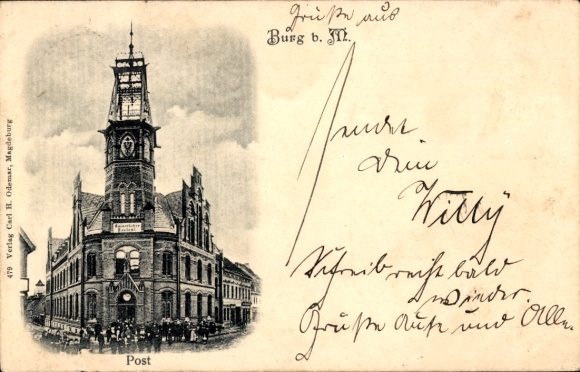 Grüße aus
Burg b. M.
sendet
Dein
Willy
Schreib recht bald
wieder.
Grüße und Alle.
Kaiserliches
Postamt
Post
479 Verlag Carl H. Odemar, Magdeburg